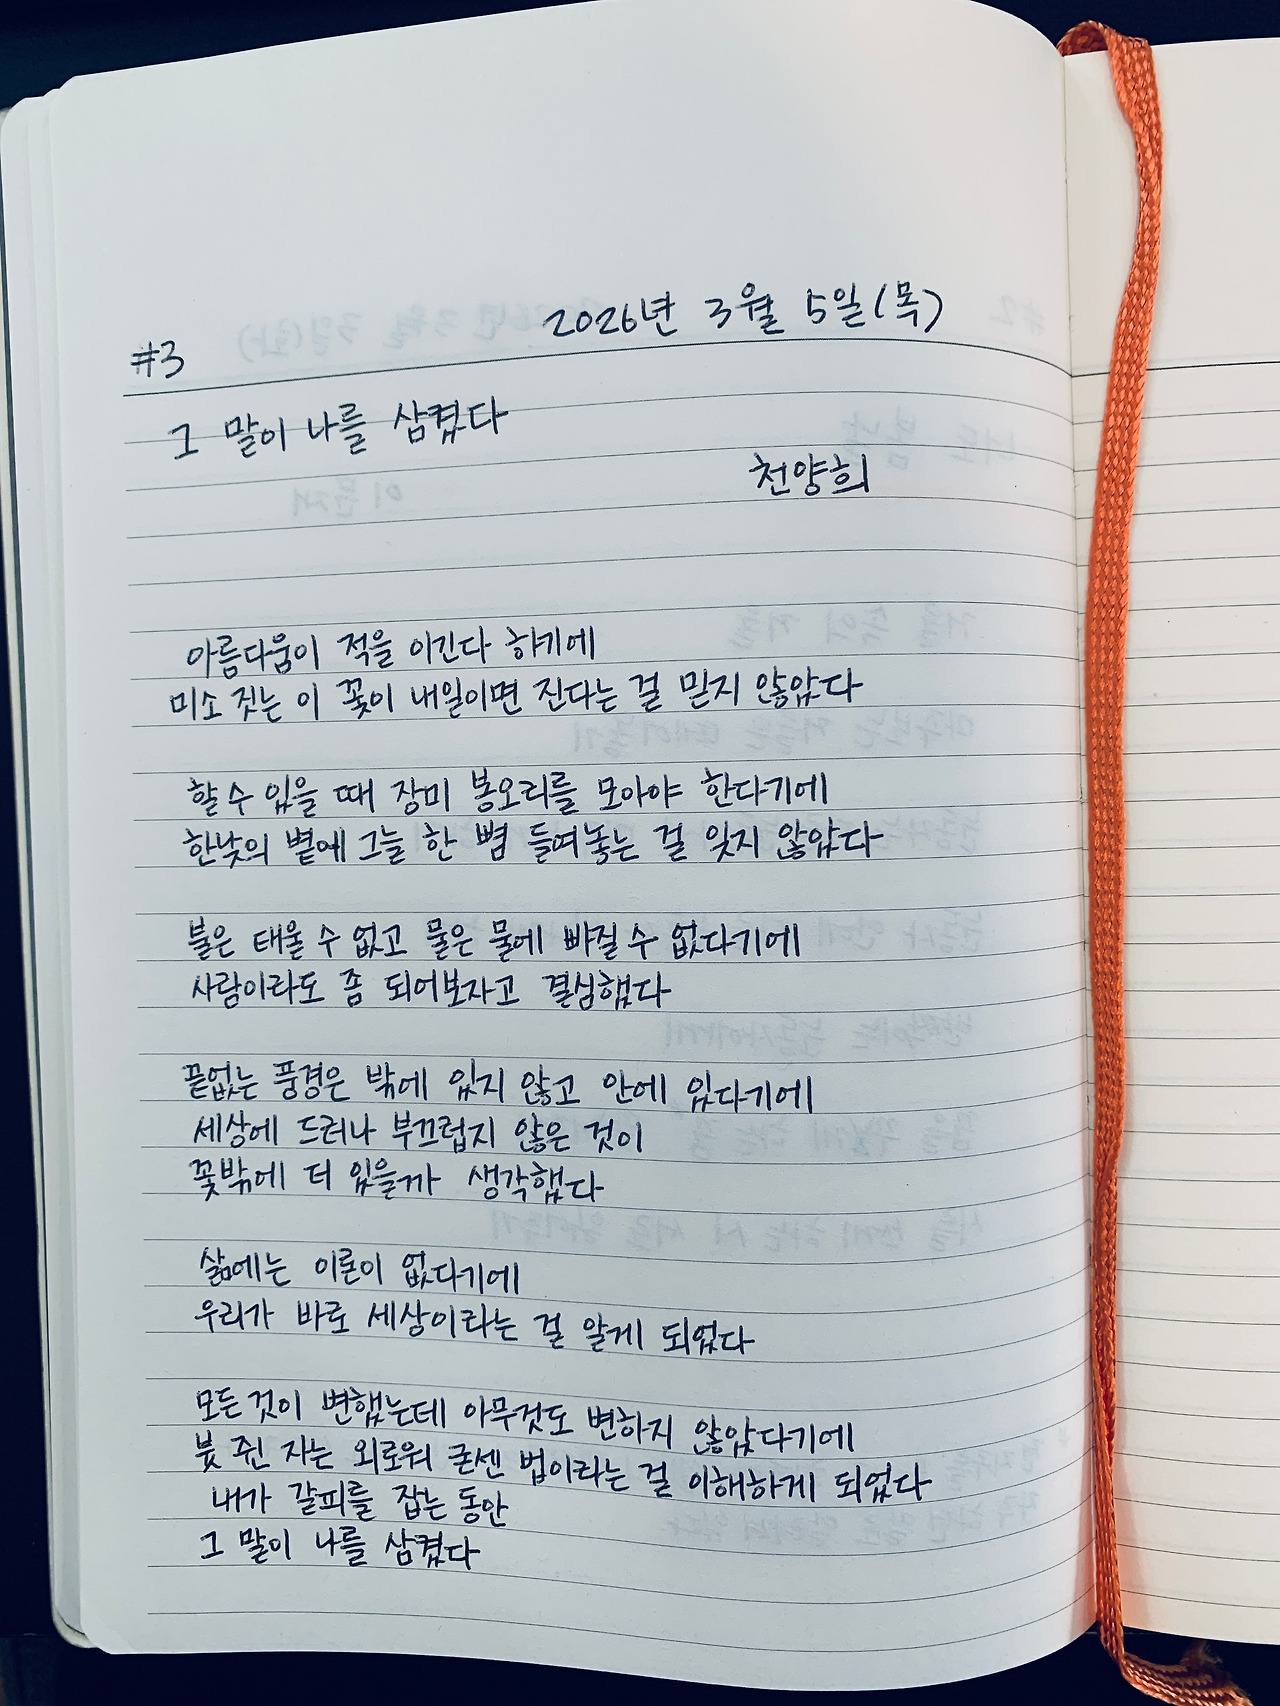 2026년 3월 5일(목)
#3
그 말이 나를 삼켰다
천양희
아름다움이 적을 이긴다 하기에
미소 짓는 이 꽃이 내일이면 진다는 걸 믿지 않았다
할 수 있을 때 장미 봉오리를 모아야 한다기에
한낮의 볕에 그늘 한 뼘 들여놓는 걸 잊지 않았다
불은 태울 수 없고 물은 물에 빠질 수 없다기에
사람이라도 좀 되어보자고 결심했다
끝없는 풍경은 밖에 있지 않고 안에 있다기에
세상에 드러나 부끄럽지 않은 것이
꽃밖에 더 있을까 생각했다
삶에는 이론이 없다기에
우리가 바로 세상이라는 걸 알게 되었다
모든 것이 변했는데 아무것도 변하지 않았다기에
붓 쥔 자는 외로워 굳센 법이라는 걸 이해하게 되었다
내가 갈피를 잡는 동안
그 말이 나를 삼켰다